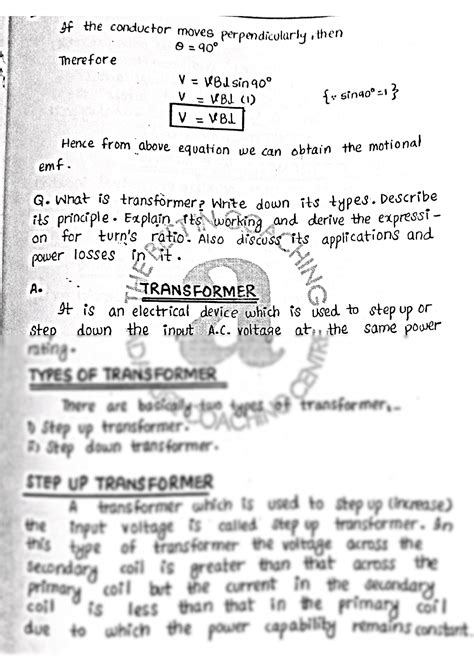 If the conductor moves perpendicularly, then
θ = 90°
Therefore
V = VBL sin 90°
V = VBL (1) {∵ sin90° = 1}
V = VBL
Hence from above equation we can obtain the motional
emf.
Q. What is transformer? Write down its types. Describe
its principle. Explain its working and derive the expressi-
on for turn's ratio. Also discuss its applications and
power losses in it.
A. TRANSFORMER
It is an electrical device which is used to step up or
step down the input A.C. voltage at the same power
rating.
TYPES OF TRANSFORMER
There are basically two types of transformer,-
i) Step up transformer.
ii) Step down transformer.
STEP UP TRANSFORMER
A transformer which is used to step up (increase)
the input voltage is called step up transformer. In
this type of transformer the voltage across the
secondary coil is greater than that across the
primary coil but the current in the secondary
coil is less than that in the primary coil
due to which the power capability remains constant.
COACHING CENTRE